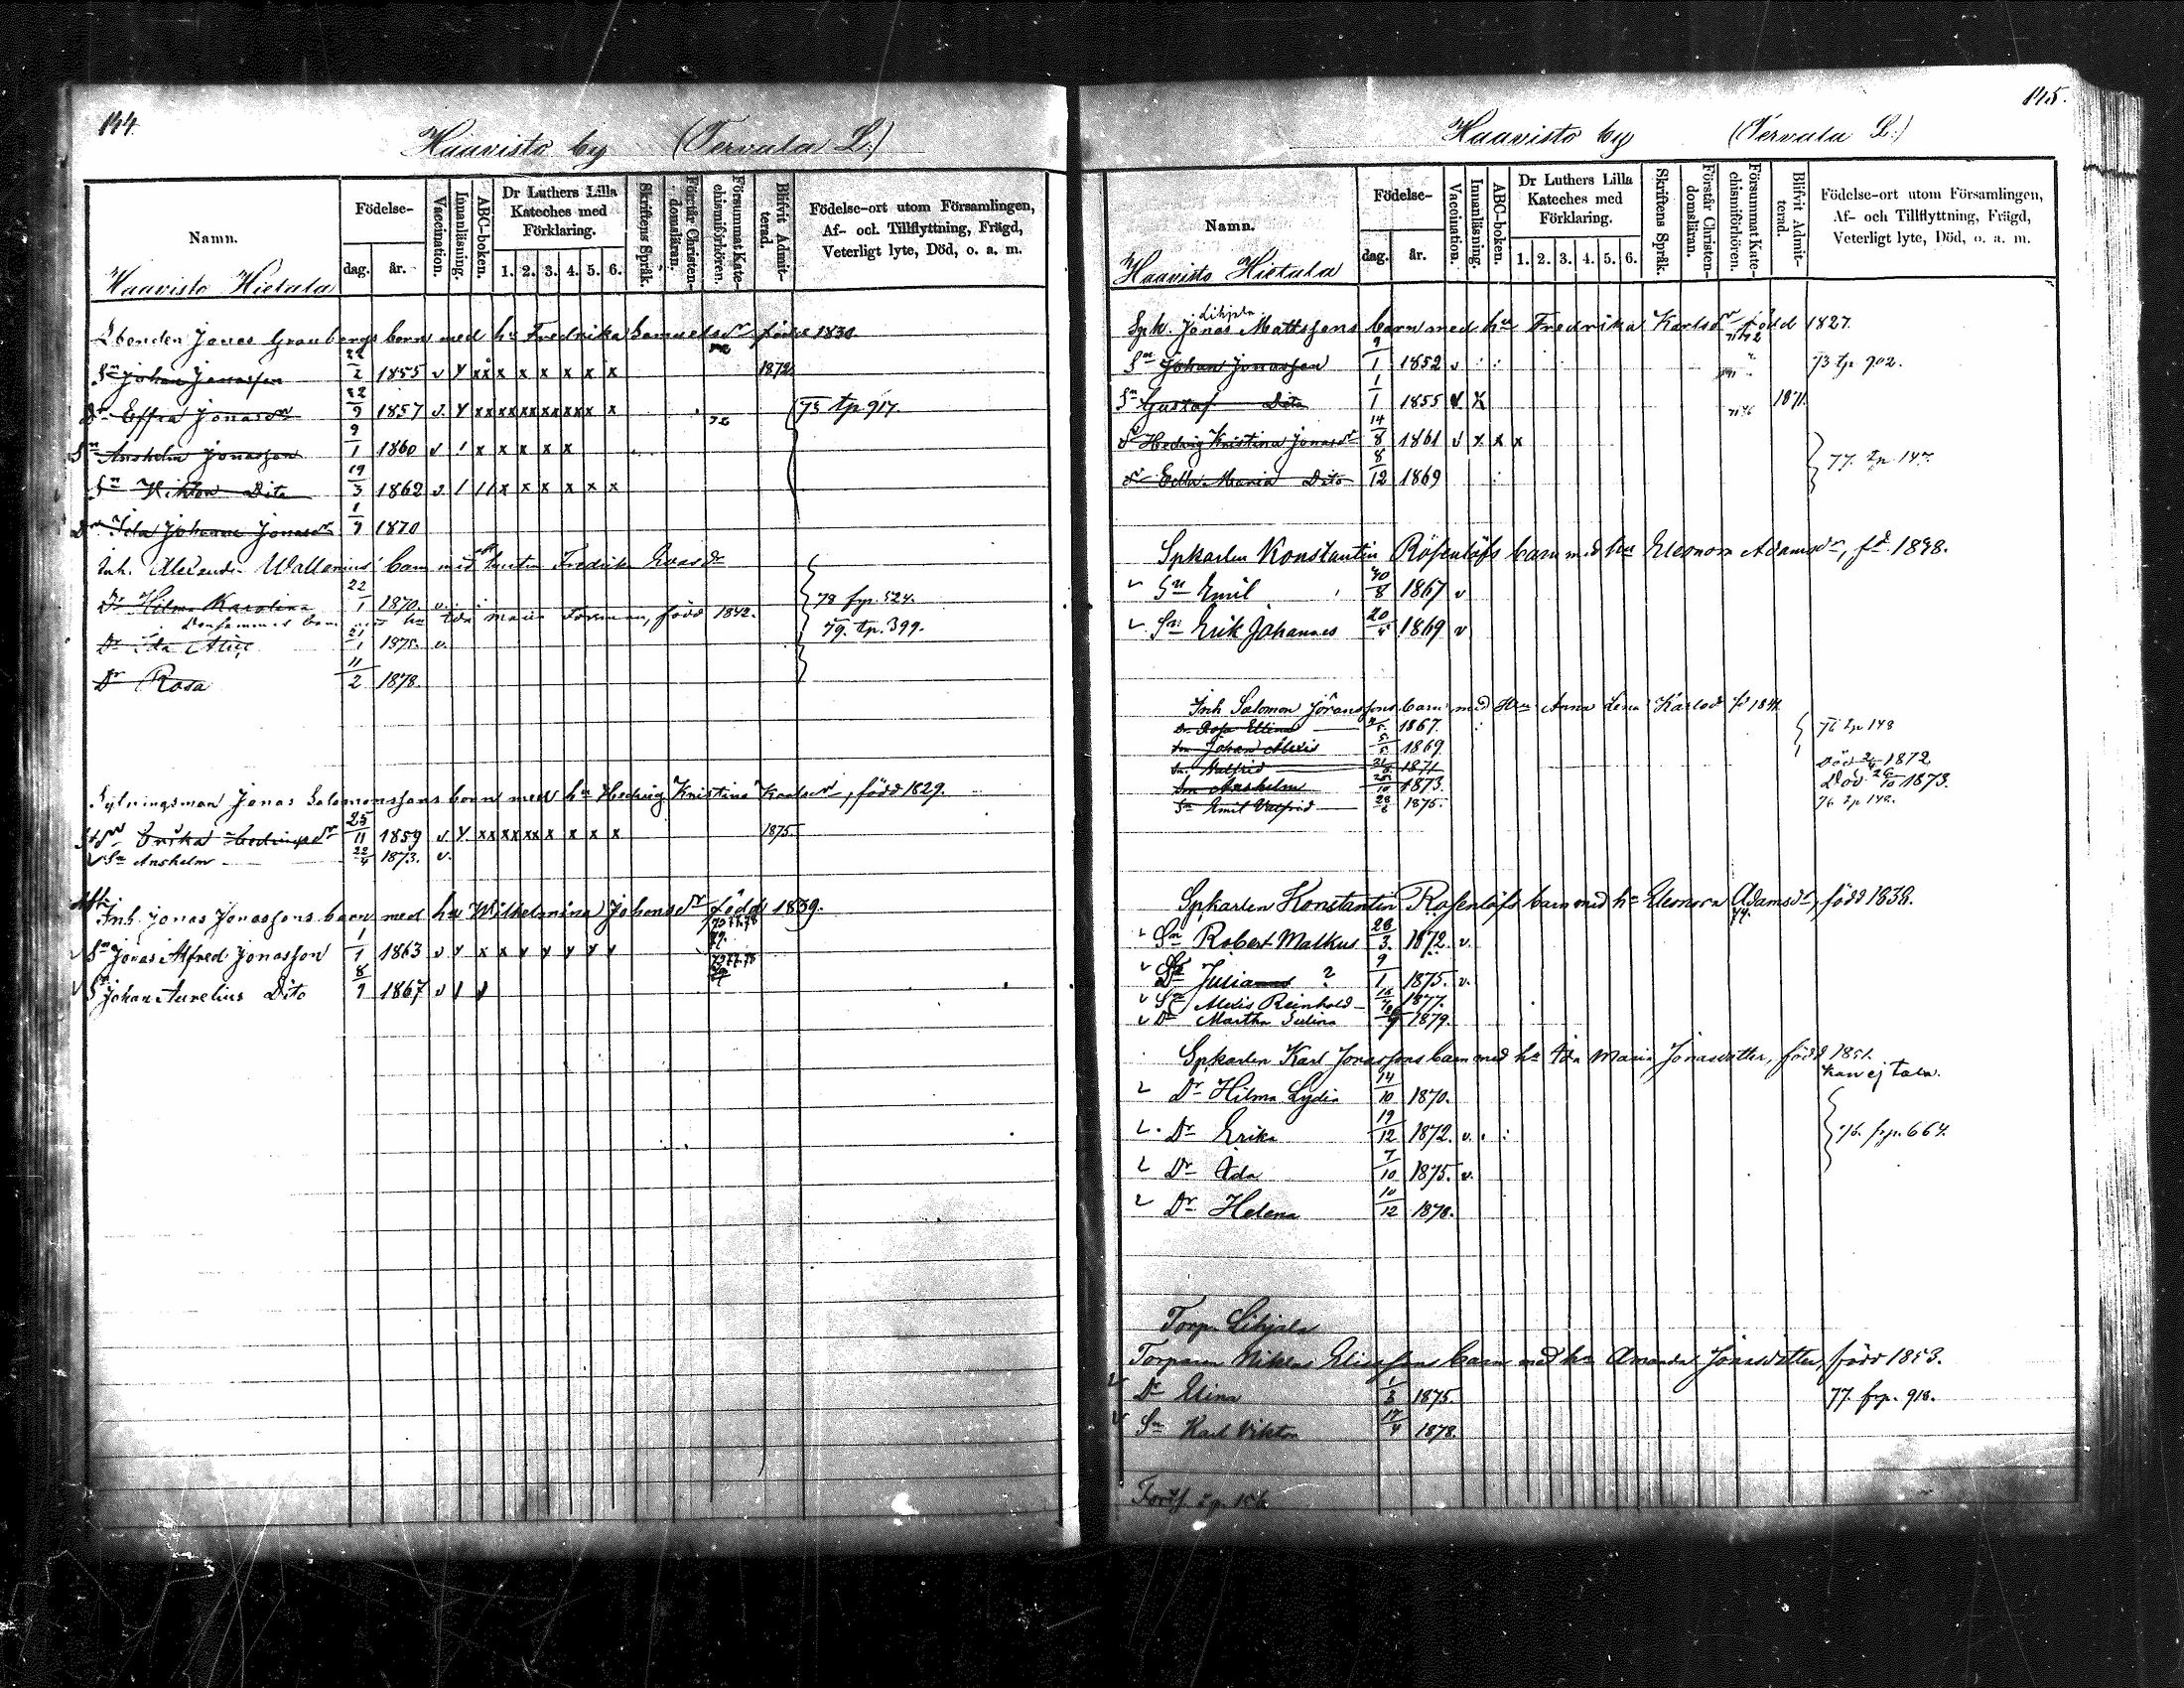 144.
Haavisto by (Tervala L.)
Namn.
Födelse-
dag.
år.
Vaccination.
Innanläsning.
ABC-boken.
Dr Luthers Lilla Kateches med Förklaring.
1. 2. 3. 4. 5. 6.
Skriftens Språk.
Förstår Christendomsläran.
Försummat Katechismiförhören.
Blifvit Admitterad.
Födelse-ort utom Församlingen, Af- och Tillflyttning, Frägd, Veterligt lyte, Död, o. a. m.
Haavisto Hietala
Jonas Granbergs barn med hu Fredrika Samuelsdr född 1830.
Sn Johan Jonasson 22/2 1855 v y xx x x x x x x 1872
Dr Effra Jonasdr 22/9 1857 v. y xx xx xx xx xx x x 75 tp 917.
Sn Anshelm Jonasson 9/1 1860 v / x x x x x
Sn Viktor Dito 19/3 1862 v. / // x x x x x x
Dr Ida Johanna Jonasdr 1/9 1870
Inh. Alexander Wallenius barn med hustru Fredrika
Dr Hilma Karolina 22/1 1870. v. 78 frp. 524.
hu Ida Maria Forsman, född 1842.
Dr Ida Alice 21/1 1875. v. 79. tp. 399.
Dr Rosa 11/2 1878.
Jonas Salomonssons barn med hu Hedvig Kristina Karlsdr, född 1829.
Erika 25/11 1859 v y xx xx xx x x x x 1875.
v Sn Anshelm 22/4 1873. v.
Inh. Jonas Jonassons barn med hu Wilhelmina Johansdr född 1839.
v Sn Jonas Alfred Jonasson 1/1 1863 v y x x y y y y y
v Sn Johan Aurelius Dito 8/9 1867 v / /
145.
Haavisto by (Tervala L.)
Namn.
Födelse-
dag.
år.
Vaccination.
Innanläsning.
ABC-boken.
Dr Luthers Lilla Kateches med Förklaring.
1. 2. 3. 4. 5. 6.
Skriftens Språk.
Förstår Christendomsläran.
Försummat Katechismiförhören.
Blifvit Admitterad.
Födelse-ort utom Församlingen, Af- och Tillflyttning, Frägd, Veterligt lyte, Död, o. a. m.
Haavisto Hietala
Lihjala
Sph. Jonas Mattssons barn med hu Fredrika Karlsdr född 1827.
Sn Johan Jonasson 9/1 1852 v 73 tp 902.
Sn Gustaf Dito 1/1 1855 v x 1871
Dr Hedvig Kristina Jonasdr 14/8 1861 v x x x
Dr Edla Maria Dito 8/12 1869 77. tp 147.
Spkarlen Konstantin Rosenlöfs barn med hu Eleonora Adamsdr, fd. 1838.
v Sn Emil 1867 v
v Sn Erik Johannes 20/4 1869 v
Inh Salomon Jöranssons barn med Hu Anna Lena Karlsd
Dr Rosa Elina 1867. 76 tp 148
Sn Johan Alexis 1869
Sn Valfrid 1871 Död 1872
Sn Anshelm 1873. Död 1873.
Sn Emil Valfrid 1875. 76 tp 148.
Spkarlen Konstantin Rosenlöfs barn med hu Eleonora Adamsdr, född 1838.
v Sn Robert Malkus 26/3. 1872. v.
v Dr Juliana ? 9/1 1875. v.
v Sn Alexis Reinhold 1877.
v Dr Martha Selina 1879.
Spkarlen Karl Jonassons barn med hu Ida Maria Jonasdotter, född 1851.
Kan ej tala.
v Dr Hilma Lydia 14/10 1870.
v Dr Erika 19/12 1872. v. 76. frp. 664.
v Dr Ida 7/10 1875. v.
v Dr Helena 10/12 1878.
Torp. Lihjala
Torparen Niklas Eliassons barn med hu Amanda Jonasdotter, född 1853.
v Dr Elina 1/3 1875. 77. frp. 918.
v Sn Karl Viktor 17/4 1878.